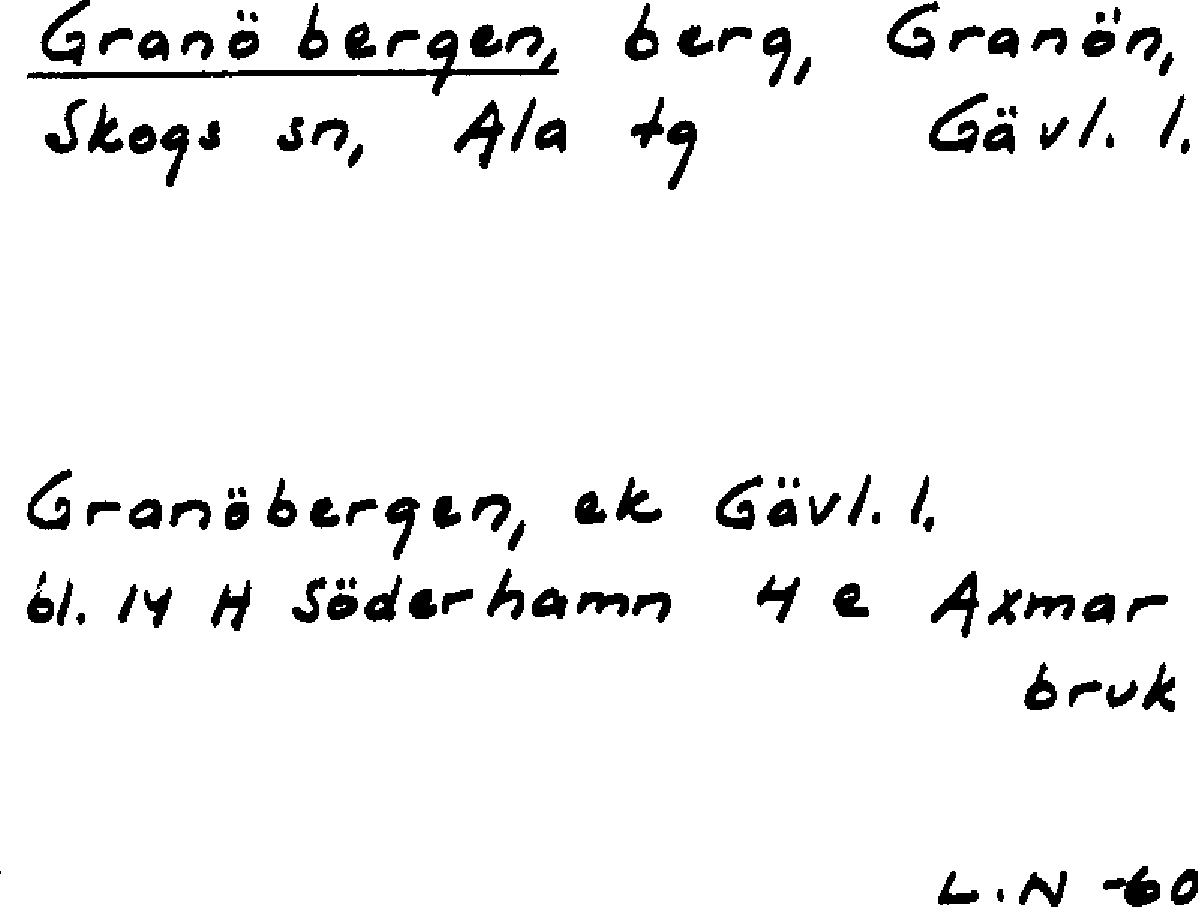 Granöbergen, berg, Granön,
Skogs sn, Ala tg Gävl. l.
Granöbergen, ek Gävl. l.
bl. 14 H Söderhamn 4 e Axmar
bruk
L.N -60